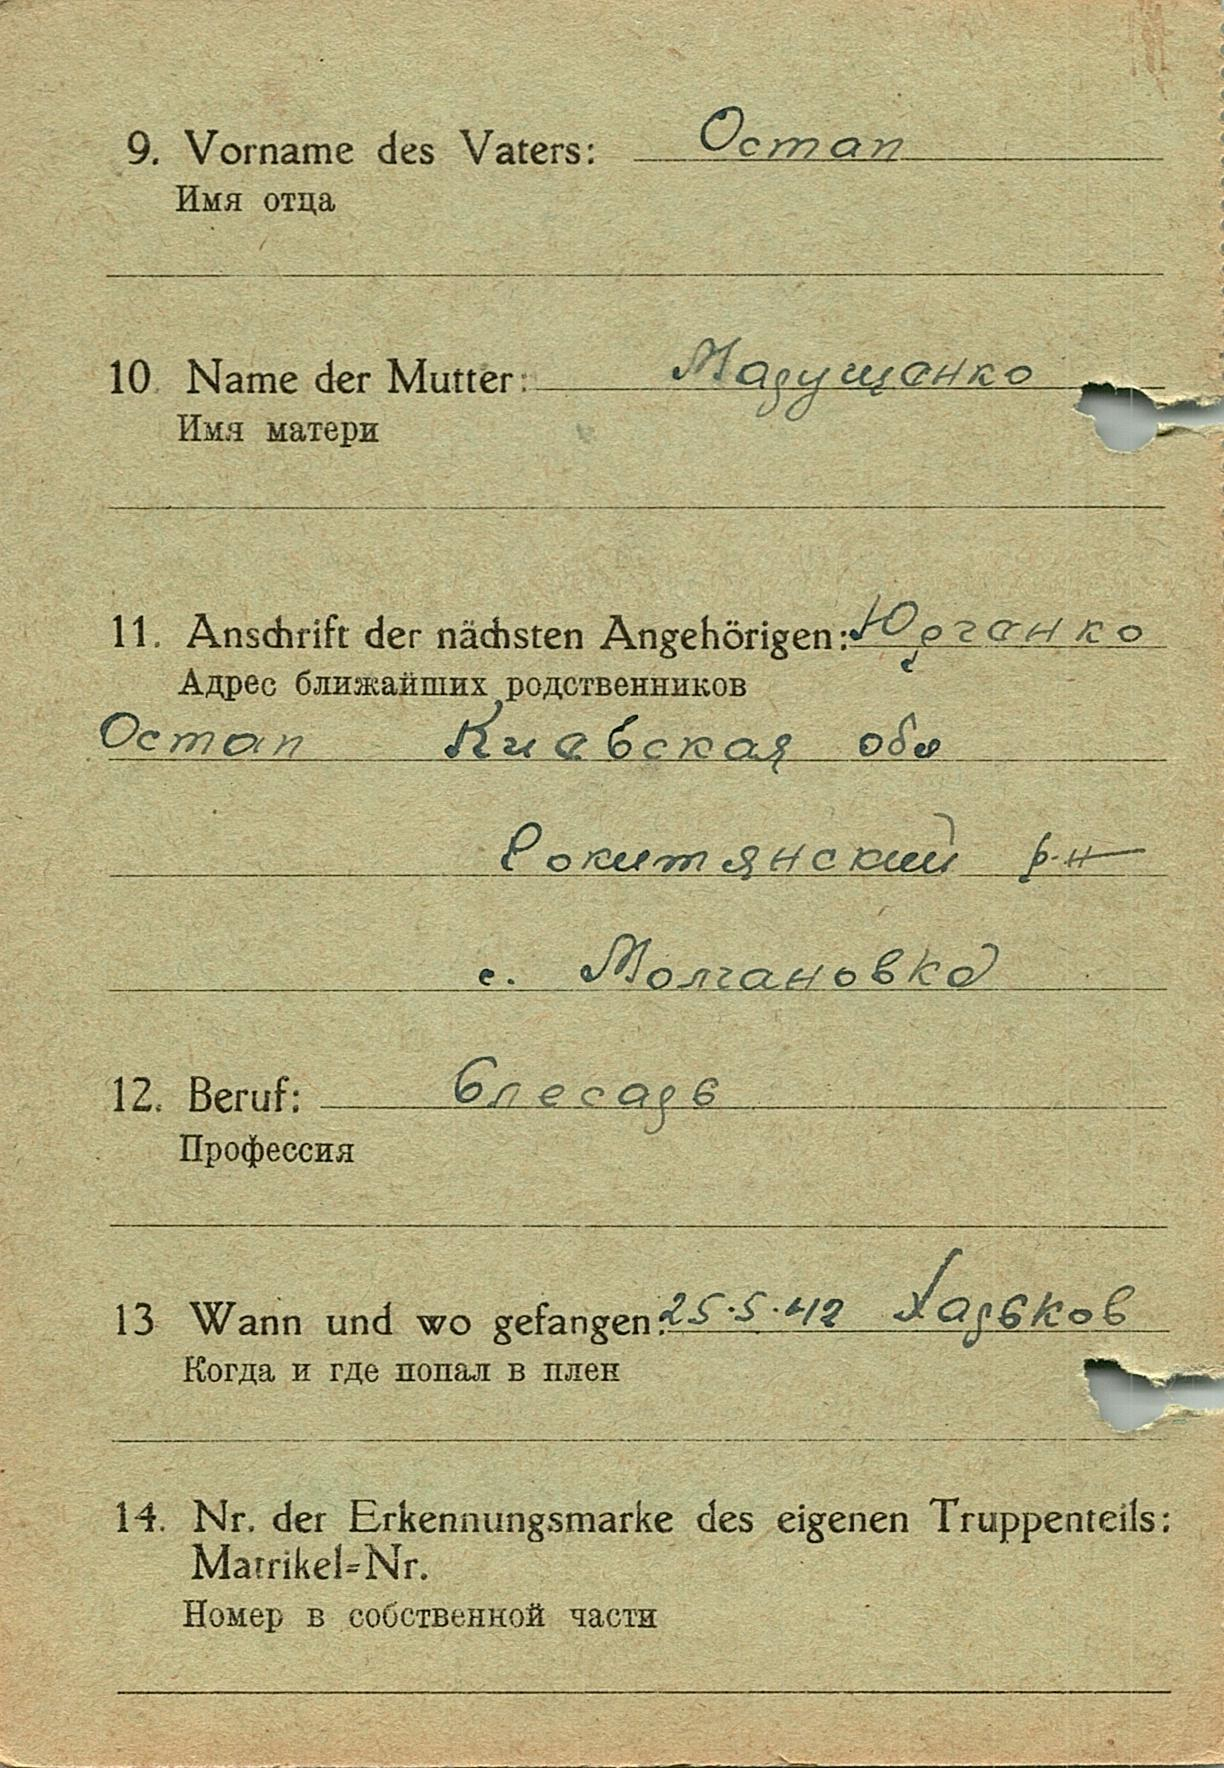 9. Vorname des Vaters: Остап
Имя отца
10. Name der Mutter: Марущенко
Имя матери
11. Anschrift der nächsten Angehörigen: Юрченко
Адрес ближайших родственников
Остап Киевская обл
Рокитянский р-н
с. Молчановка
12. Beruf: Слесарь
Профессия
13 Wann und wo gefangen: 25.5.42 Харьков
Когда и где попал в плен
14. Nr. der Erkennungsmarke des eigenen Truppenteils:
Matrikel=Nr.
Номер в собственной части